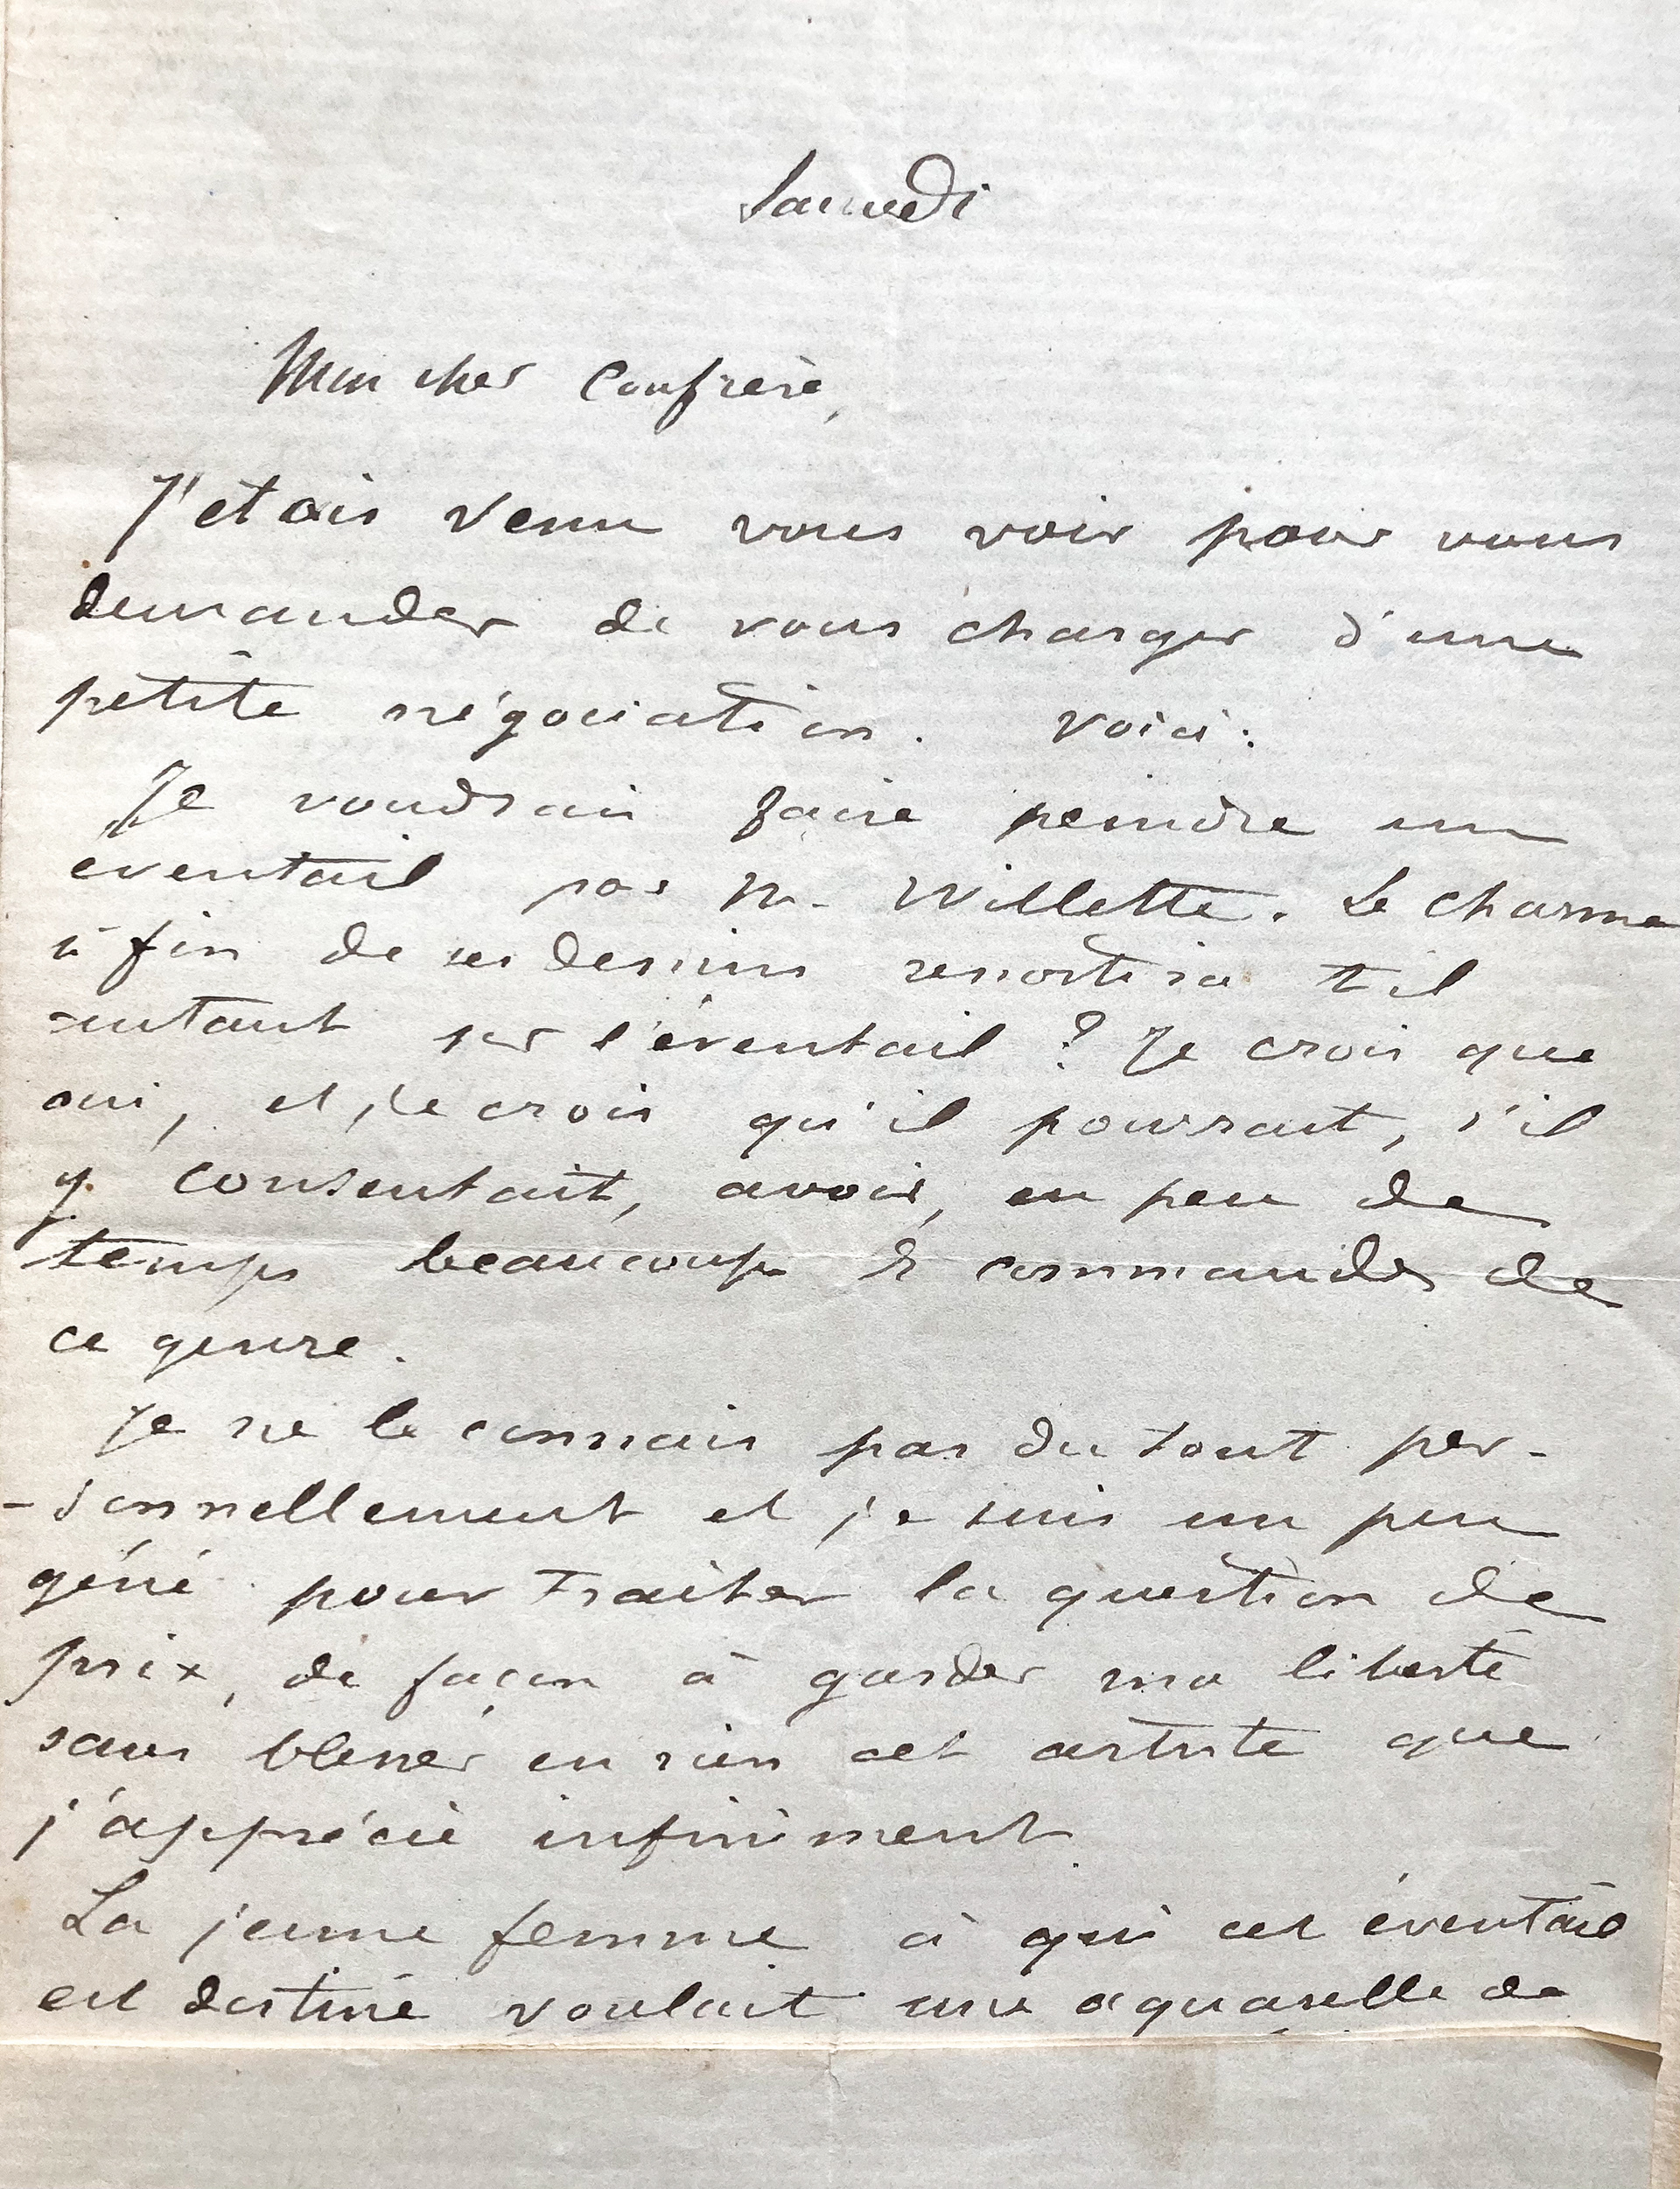 Samedi
Mon cher Confrère,
J'étais venu vous voir pour vous
demander de vous charger d'une
petite négociation. Voici :
Je voudrais faire peindre un
éventail par M. Willette. Le charme
si fin de ses dessins ressortira t il
autant sur l'éventail ? Je crois que
oui, et je crois qu'il pourrait, s'il
y consentait, avoir, en peu de
temps beaucoup de commandes de
ce genre.
Je ne le connais pas du tout per-
-sonnellement et je suis un peu
gêné pour traiter la question de
prix, de façon à garder ma liberté
sans blesser en rien cet artiste que
j'apprécie infiniment.
La jeune femme à qui cet éventail
est destiné voulait une aquarelle de